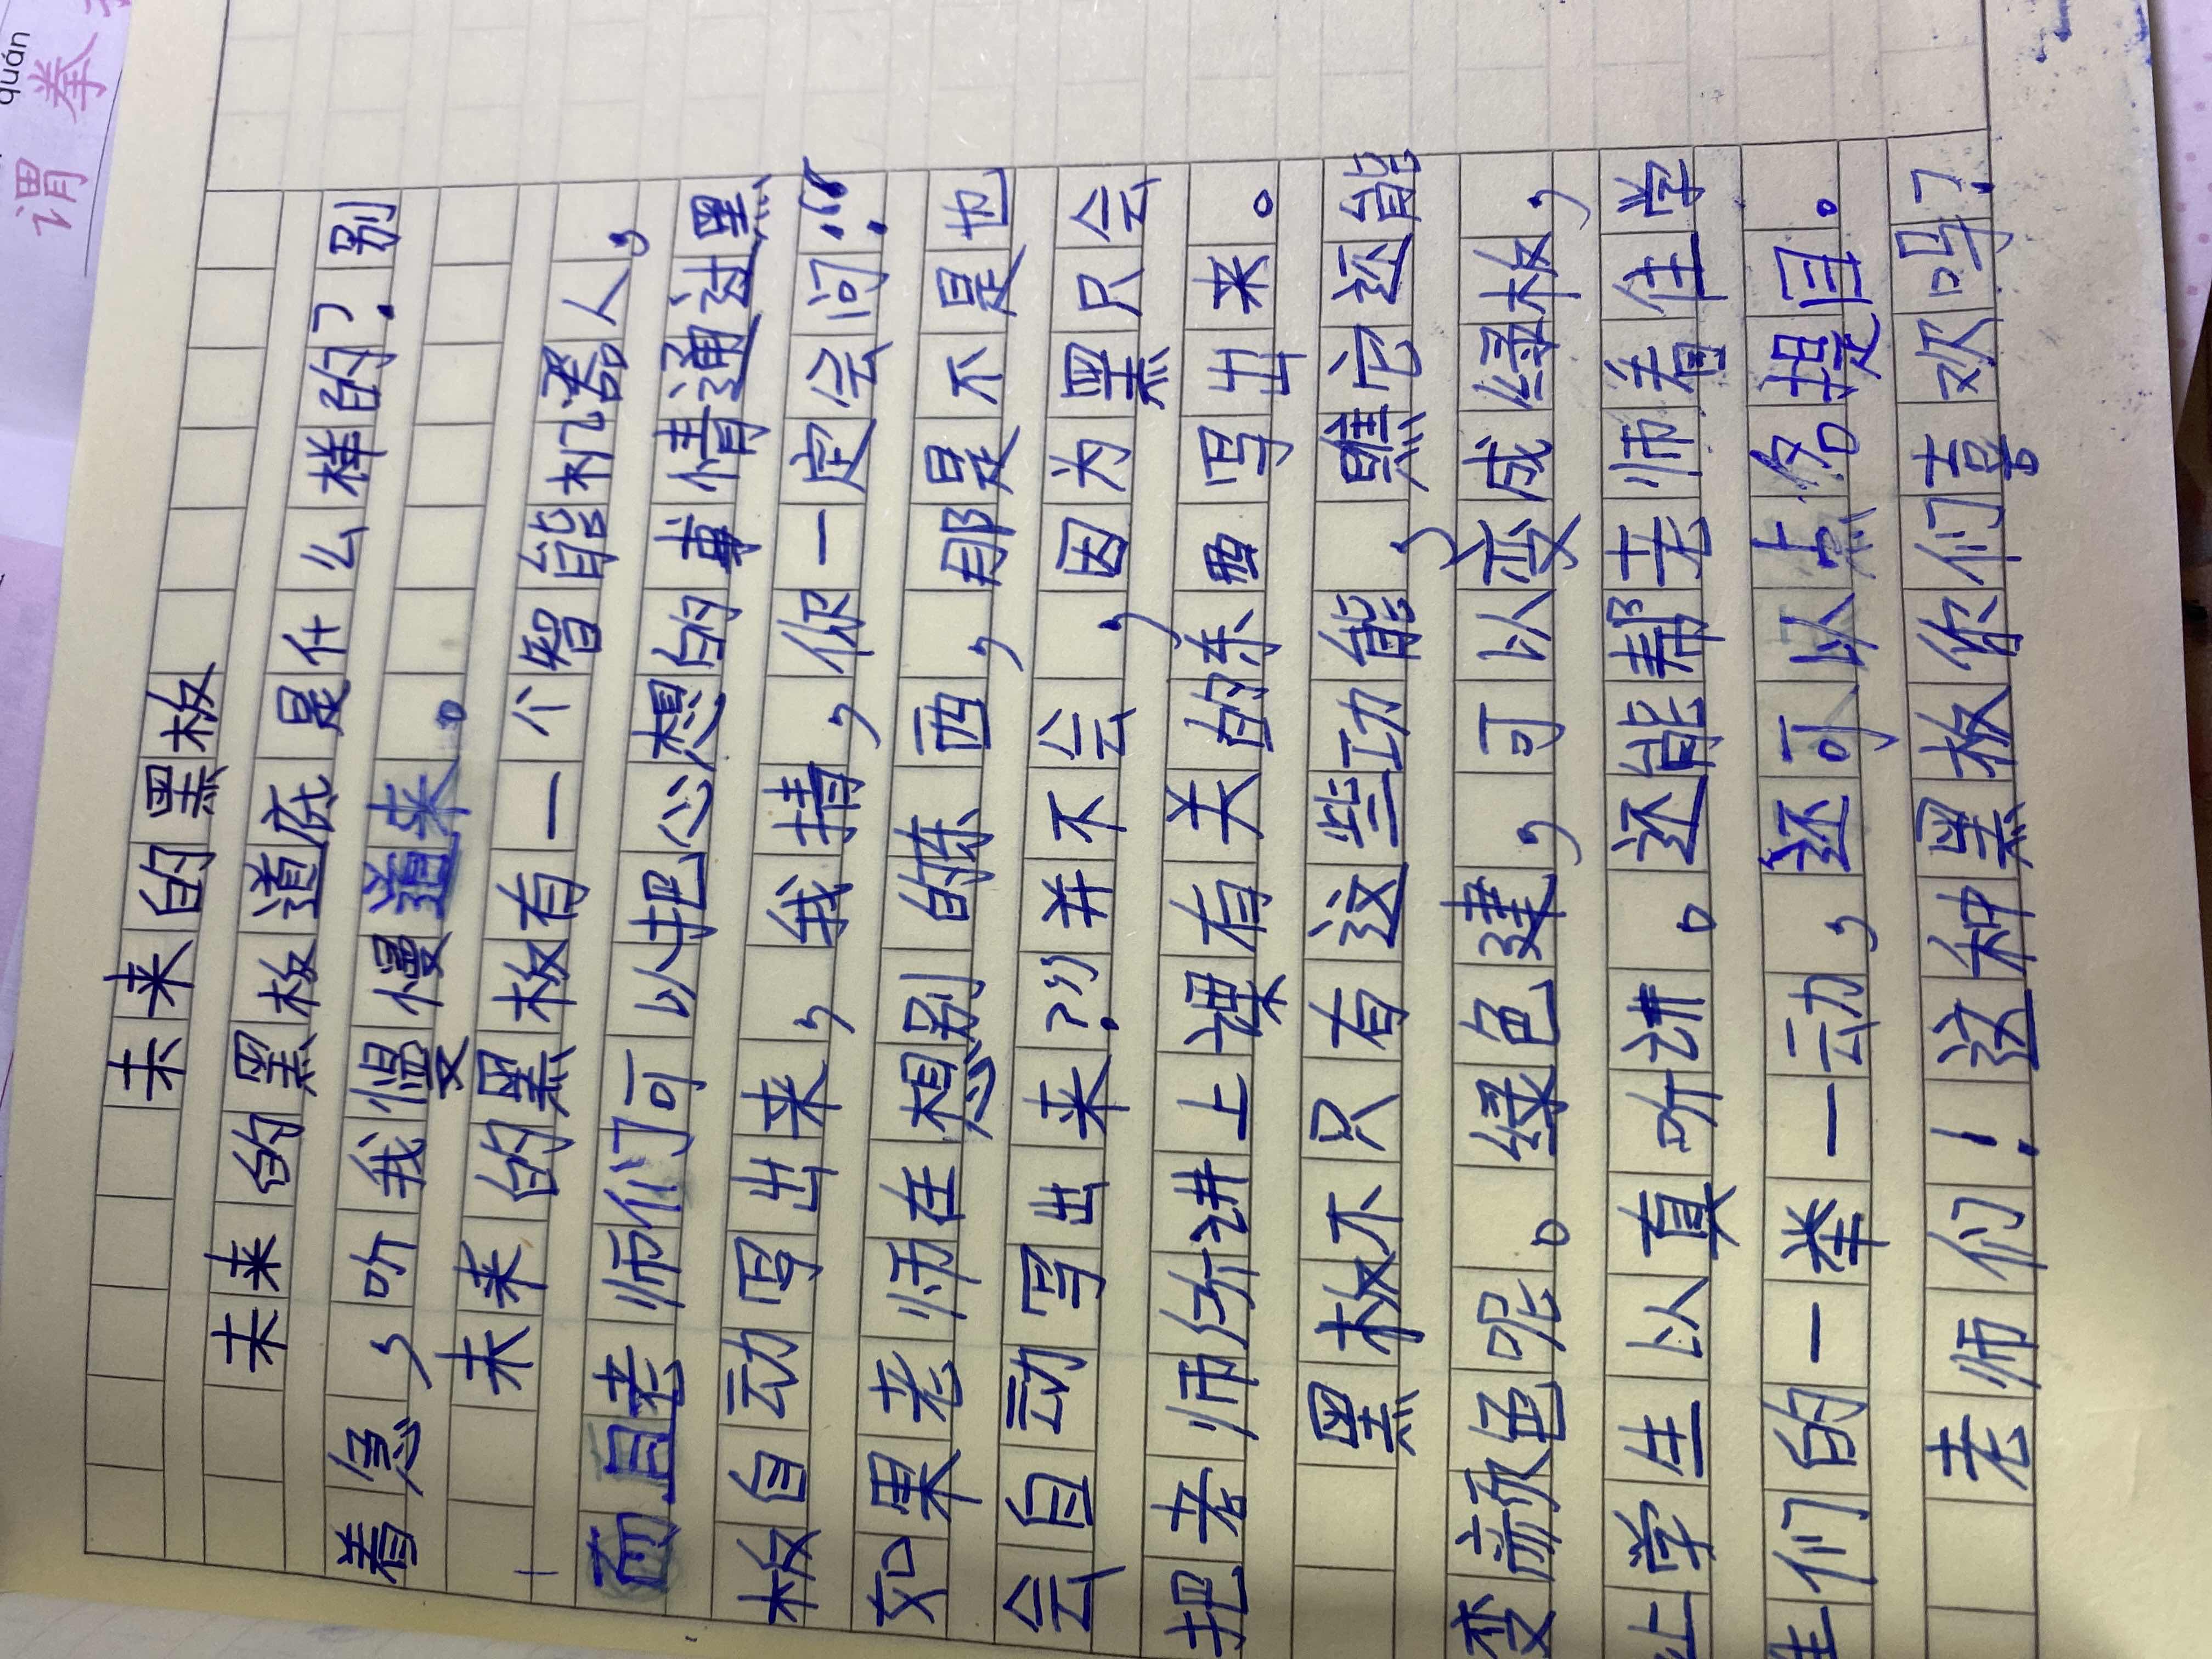 quán
谓 拳
未来的黑板
未来的黑板道底是什么样的?别
着急,听我慢慢道来。
未来的黑板有一个智能机器人,
而且老师们可以把心想的事情通过黑
板自动写出来,我猜,你一定会问:“
如果老师在想别的东西,那是不是也
会自动写出来?”并不会,因为黑只会
把老师讲上课有关的东西写出来。
黑板不只有这些功能,瞧它还能
变颜色呢。绿色建,可以变成绿板,
让学生以真听讲。还能帮老师看住学
生们的一举一动,还可以点名提目.
老师们!这种黑板你们喜欢吗?